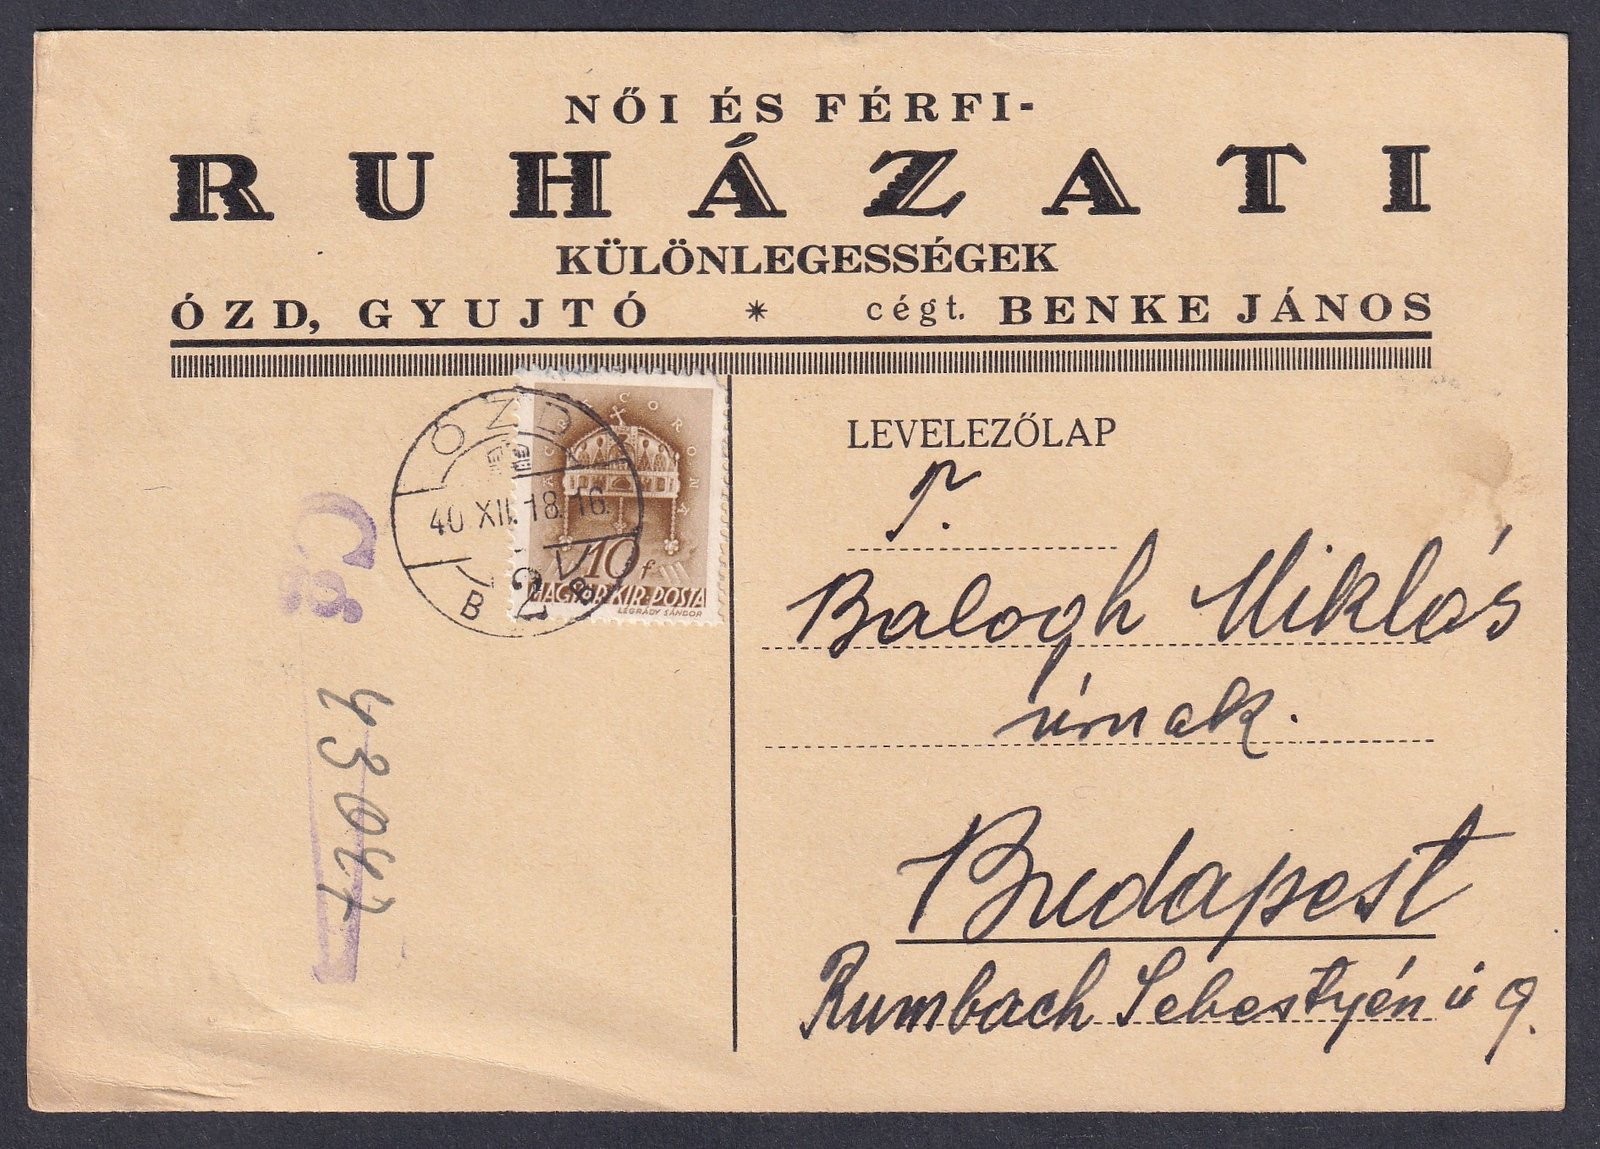 NŐI ÉS FÉRFI-
RUHÁZATI
KÜLÖNLEGESSÉGEK
ÓZD, GYUJTÓ * cégt. BENKE JÁNOS
LEVELEZŐLAP
T.
Balogh Miklós
úrnak.
Budapest
Rumbach Sebestyén u 9.
ÓZD
40 XII. 18. 16
B 2
SACRA CORONA
10 f
MAGYAR KIR. POSTA
LÉGRÁDY SÁNDOR
Cs
43047